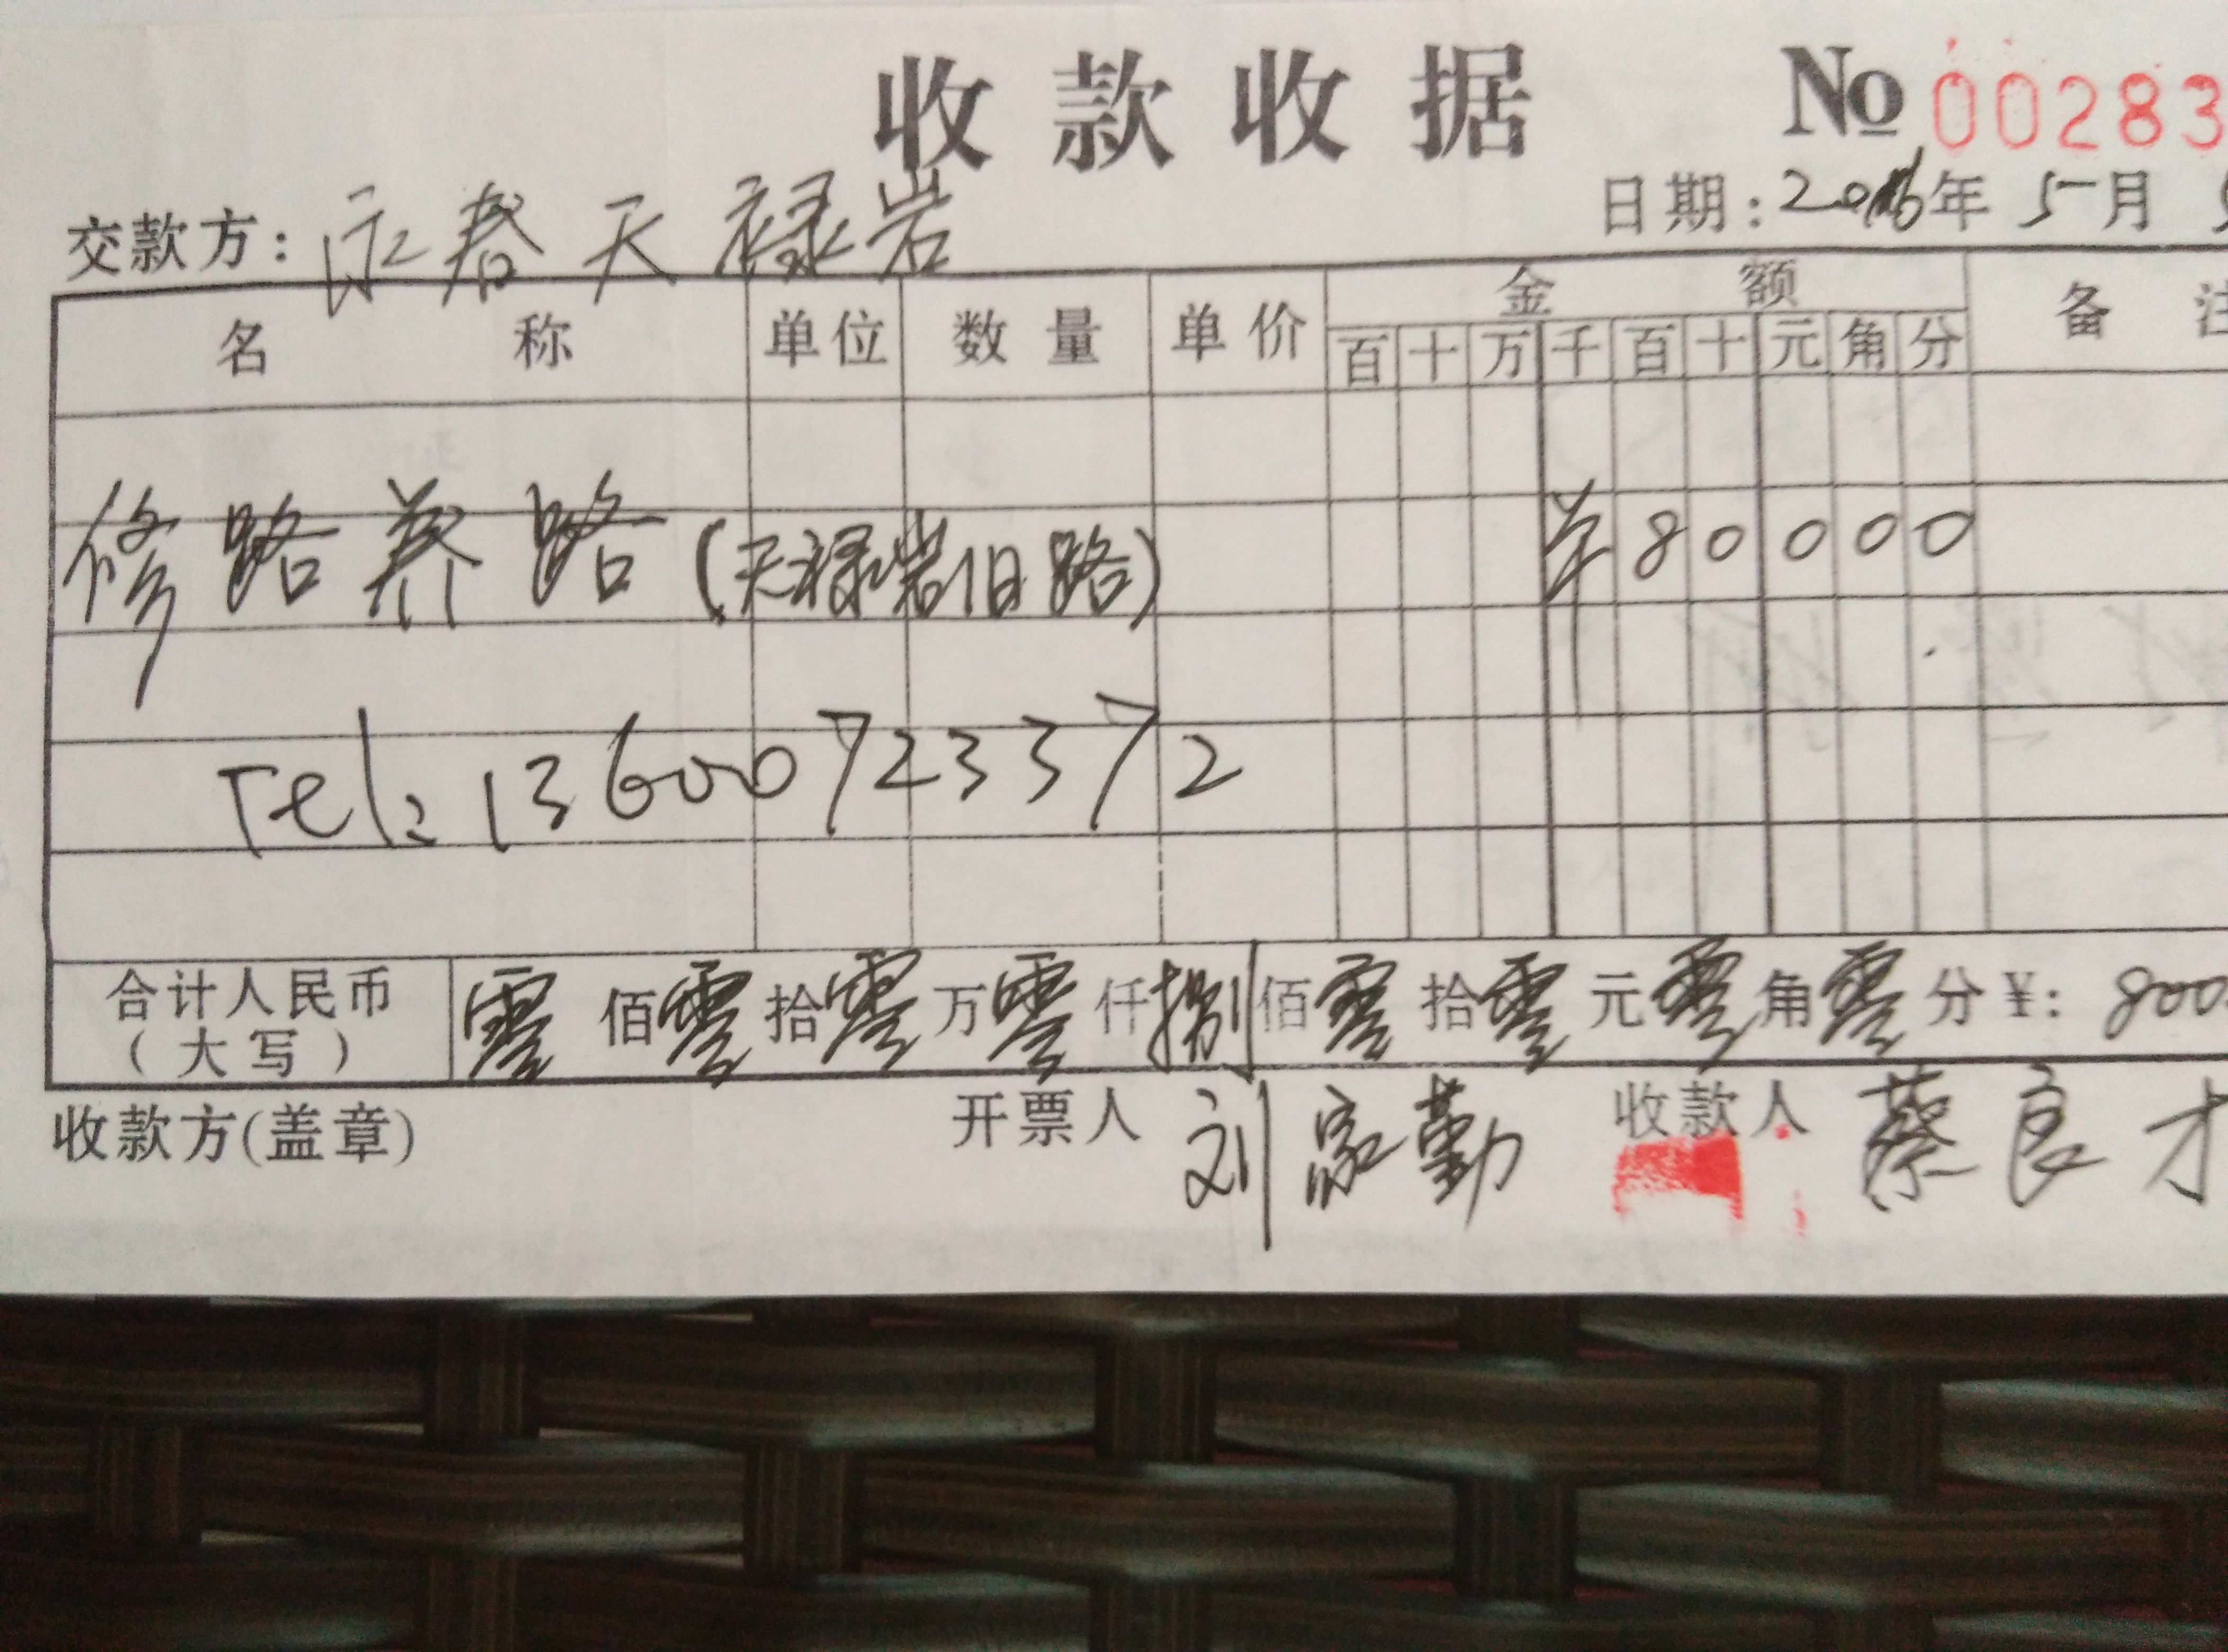 收款收据 No 00283
交款方：永春天禄岩 日期：2016年5月
名称 单位 数量 单价 金额 备注
百 十 万 千 百 十 元 角 分
修路养路（天禄岩旧路） ¥80000
Tel：13600723372
合计人民币（大写） 零佰零拾零万零仟捌佰零拾零元零角零分 ¥：800
收款方(盖章) 开票人 刘家勤 收款人 蔡良才